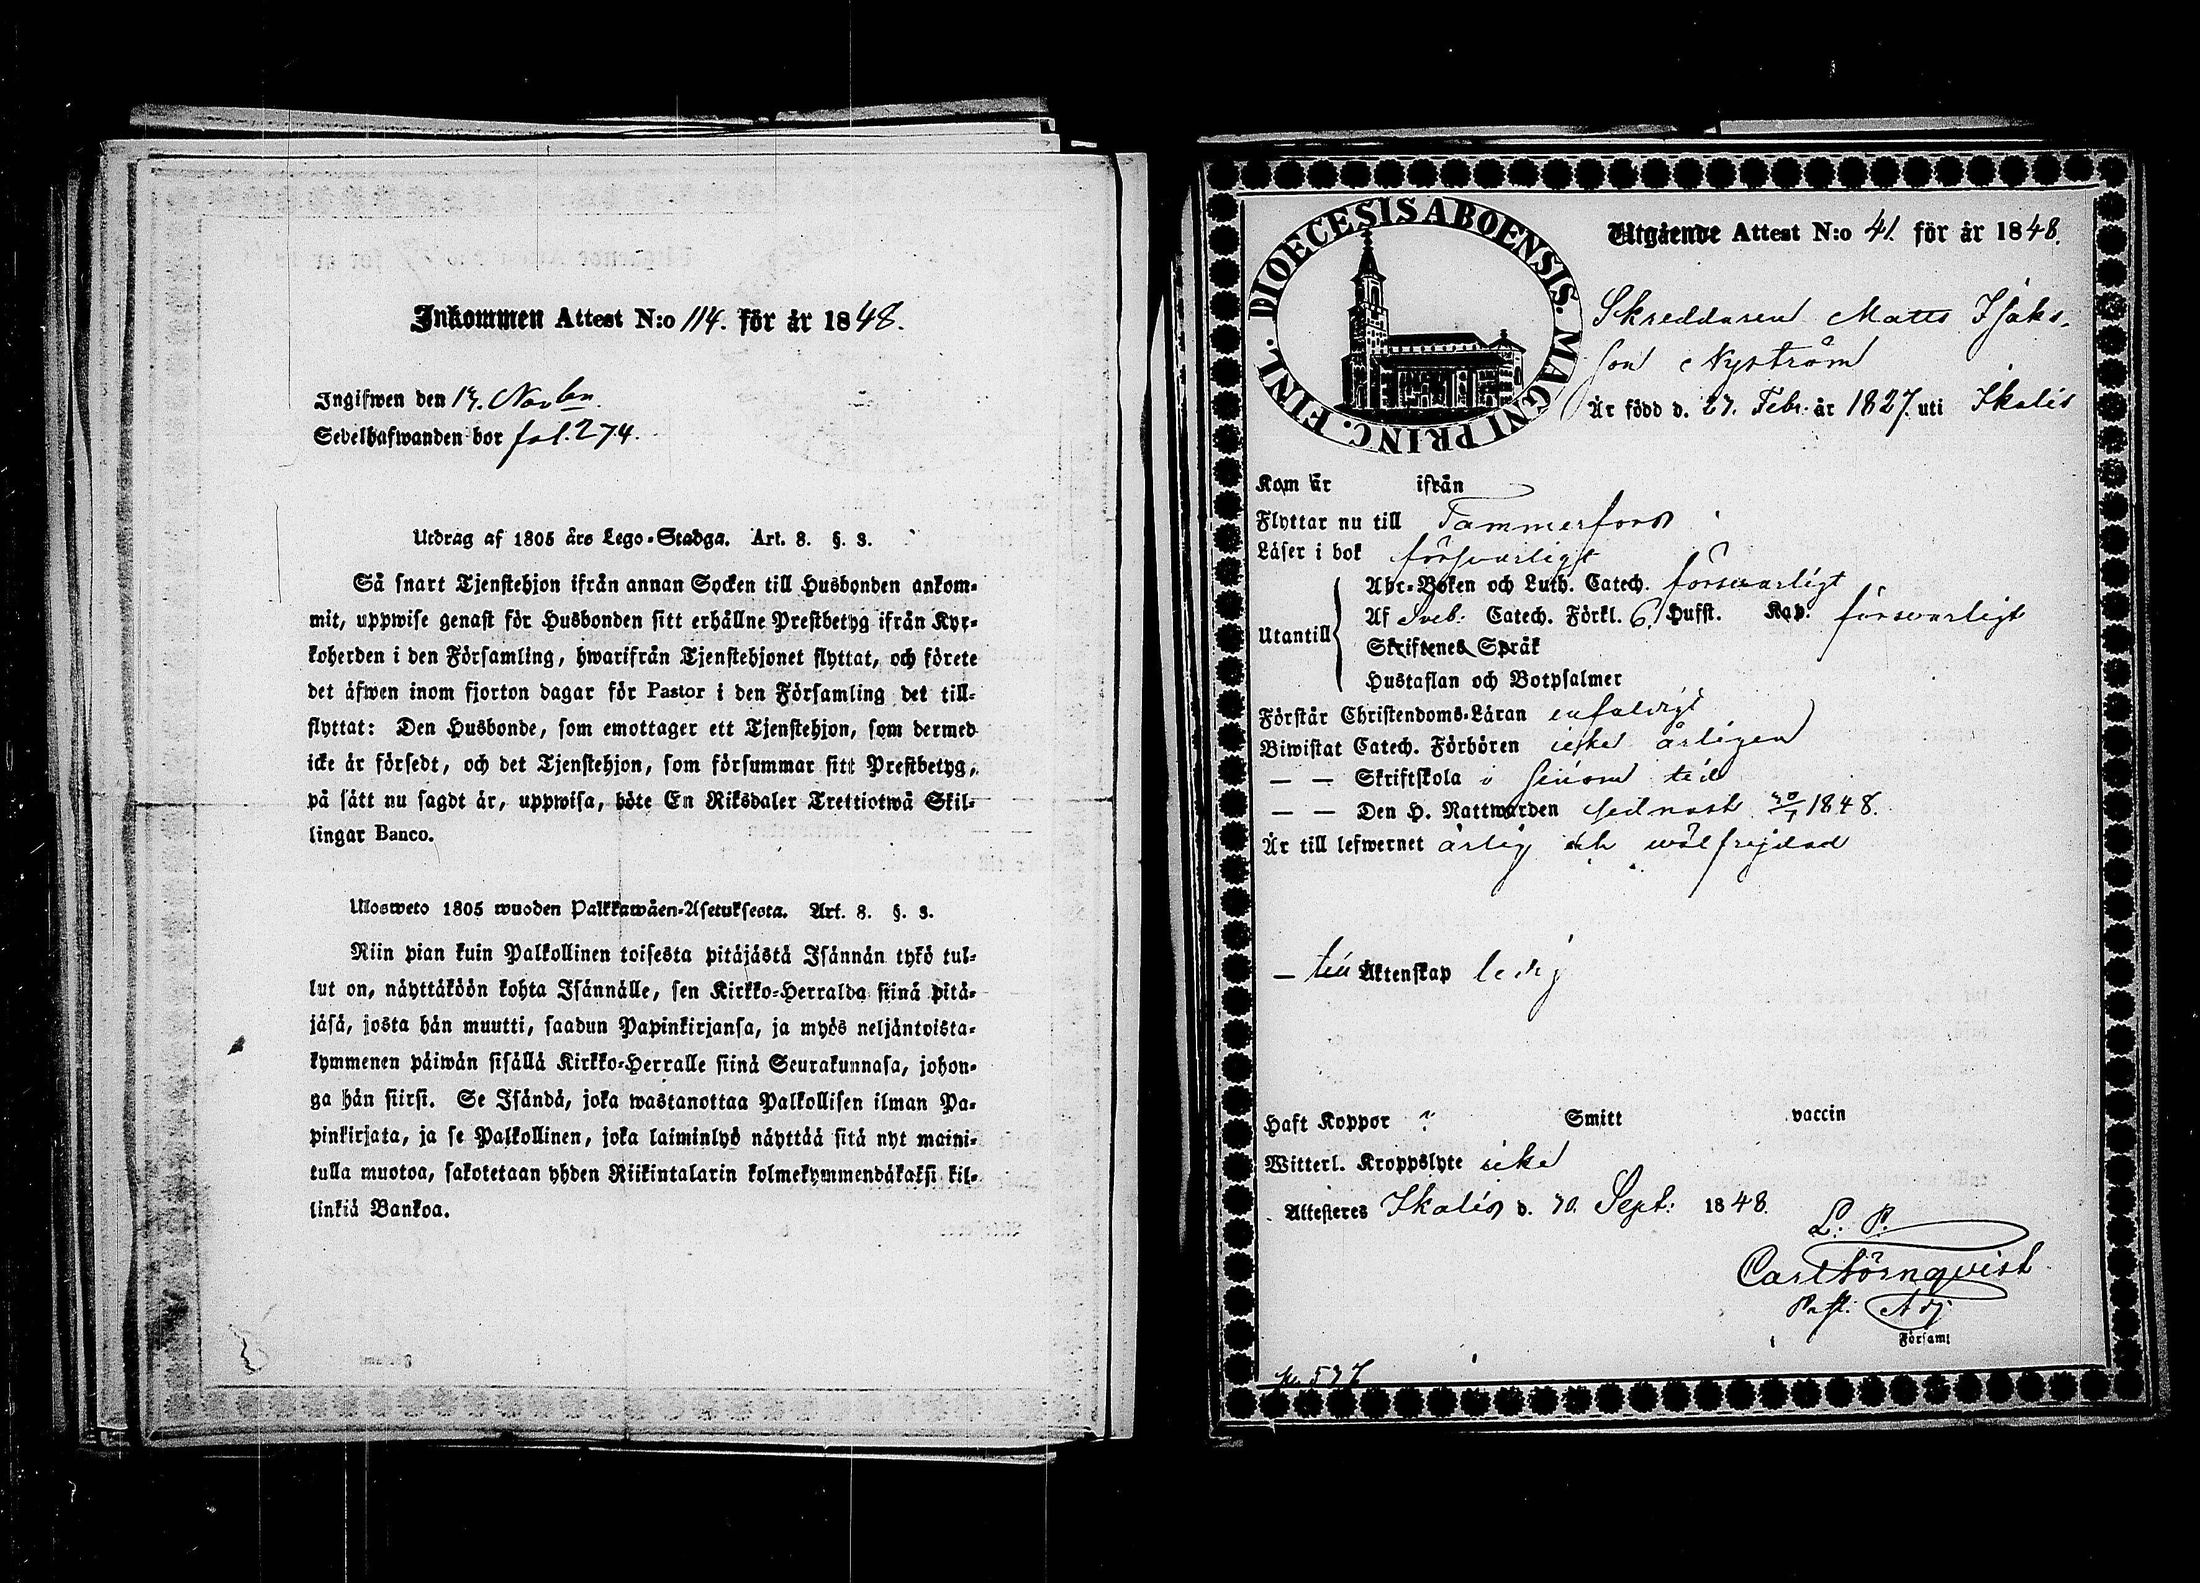 Inkommen Attest N:o 114. för år 1848.
Ingifwen den 13. Novbn
Sedelhafwanden bor fol. 274.
Utdrag af 1805 års Lego-Stadga. Art. 8. §. 3.
Så snart Tjenstehjon ifrån annan Socken till Husbonden ankom-
mit, uppwise genast för Husbonden sitt erhållne Prestbetyg ifrån Kyr-
koherden i den Församling, hwarifrån Tjenstehjonet flyttat, och förete
det äfwen inom fjorton dagar för Pastor i den Församling det till-
flyttat: Den Husbonde, som emottager ett Tjenstehjon, som dermed
icke är försedt, och det Tjenstehjon, som försummar sitt Prestbetyg,
på sätt nu sagdt är, uppwisa, böte En Riksdaler Trettiotwå Skil-
lingar Banco.
Ulosweto 1805 wuoden Palkkawäen-Asetuksesta. Art. 8. §. 3.
Niin pian kuin Palkollinen toisesta pitäjästä Isännän tykö tul-
lut on, näyttäköön kohta Isännälle, sen Kirkko-Herralda siinä pitä-
jäsä, josta hän muutti, saadun Papinkirjansa, ja myös neljäntoista-
kymmenen päiwän sisällä Kirkko-Herralle siinä Seurakunnasa, johon-
ga hän siirsi. Se Isändä, joka wastanottaa Palkollisen ilman Pa-
pinkirjata, ja se Palkollinen, joka laiminlyö näyttää sitä nyt maini-
tulla muotoa, sakotetaan yhden Riikintalarin kolmekymmendäkaksi kil-
linkiä Bankoa.
DIOECESIS ABOENSIS. MAGNI PRINC. FINL.
Utgående Attest N:o 41. för år 1848.
Skreddaren Matts Isaks-
son Nyström
Är född d. 27. Febr. år 1827. uti Ikalis
Kom år ifrån
Flyttar nu till Tammerfors
Läser i bok försvarligt
Abc-Boken och Luth. Catech. försvarligt
Utantill Af Sveb. Catech. Förkl. 6. Hufst. Kap. försvarligt
Skriftenes Språk
Hustaflan och Botpsalmer
Förstår Christendoms-Läran enfaldigt
Biwistat Catech. Förhören icke årligen
— — Skriftskola i sinom tid
— — Den H. Nattwarden sednast 30/7 1848.
Är till lefwernet ärlig och wälfrejdad
— till Äktenskap ledig
Haft Koppor Smitt vaccin
Witterl. Kroppslyte icke
Attesteres Ikalis d. 30. Sept: 1848.
L. P.
Carl Törnqvist
Past. Adj
Församl
577